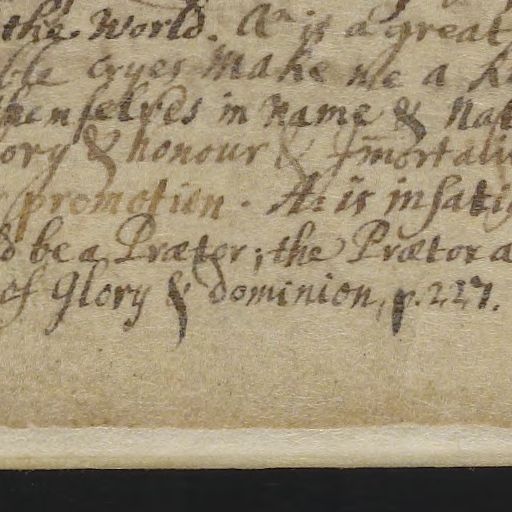 the World. A is a great
ble cryes Make me a K
hemselves in name & Nat
ory & honour & Jm̄ortali
promotion. A: is insati
d be a Prætor; the Prætor a
of Glory & dominion, p. 227.